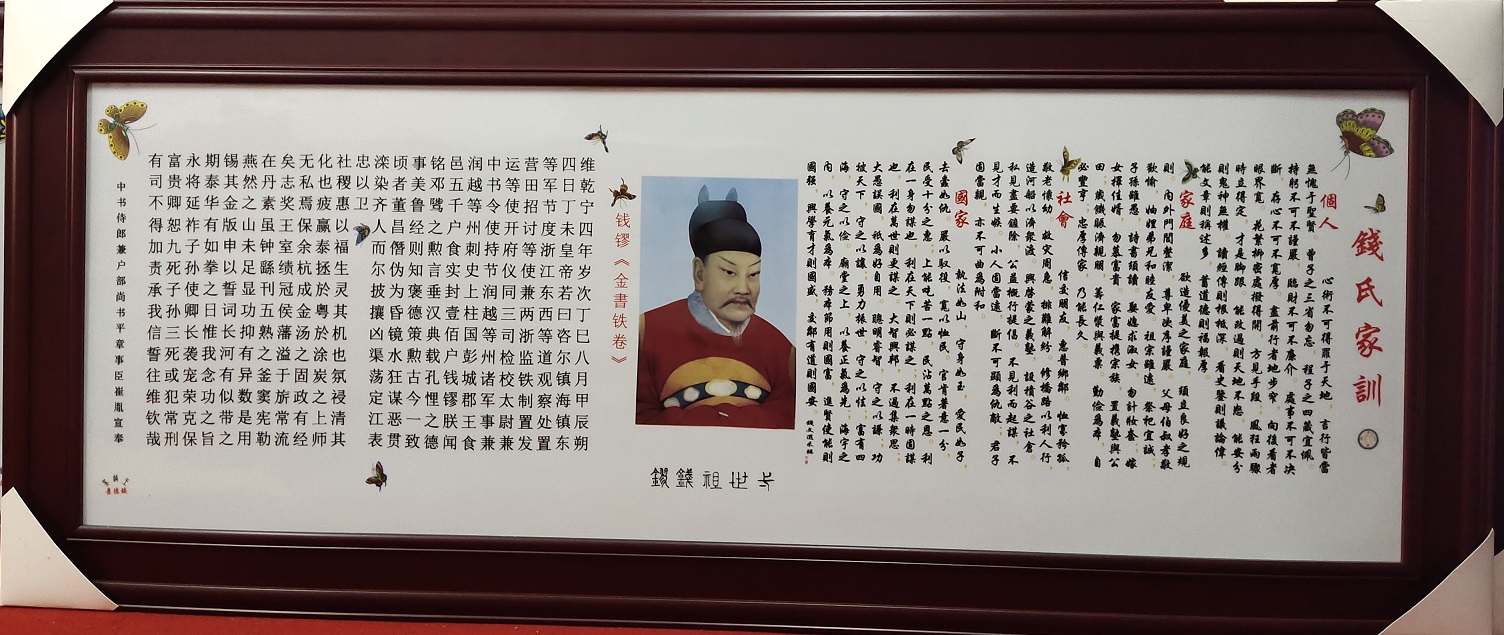 錢氏家訓
個人
心術不可得罪于天地 言行皆當
無愧于聖賢 曾子之三省勿忘 程子之四箴宜佩
持躬不可不謹嚴 臨財不可不廉介 處事不可不決
斷 存心不可不寬厚。盡前行者地步窄 向後看者
眼界寬 花繁柳密處撥得開 方見手段 風狂雨驟
時立得定 才是脚跟 能改過則天地不怒 能安分
則鬼神無權 讀經傳則根柢深 看史鑒則議論偉
能文章則稱述多 蓄道德則福報厚
家庭
欲造優美之家庭 須立良好之規
則 內外門閭整潔 尊卑次序謹嚴 父母伯叔孝敬
歡愉 妯娌弟兄和睦友愛 祖宗雖遠 祭祀宜誠
子孫雖愚 詩書須讀 娶媳求淑女 勿計妝奩 嫁
女擇佳婿 勿慕富貴 家富提攜宗族 置義塾與公
田 歲饑賑濟親朋 籌仁漿與義粟 勤儉為本 自
必豐亨 忠厚傳家 乃能長久
社會
信交朋友 惠普鄉鄰 恤寡矜孤
敬老懷幼 救災周急 排難解紛 修橋路以利人行
造河船以濟眾渡 興啓蒙之義塾 設積谷之社倉
私見盡要鏟除 公益概行提倡 不見利而起謀 不
見才而生嫉 小人固當遠 斷不可顯為仇敵 君子
固當親 亦不可曲為附和
國家
執法如山 守身如玉 愛民如子
去蠹如仇 嚴以馭役 寬以恤民 官肯著意一分
民受十分之惠 上能吃苦一點 民沾萬點之恩 利
在一身勿謀也 利在天下則必謀之 利在一時固謀
也 利在萬世則更謀之 大智興邦 不過集眾思
大愚誤國 祇為好自用 聰明睿智 守之以謙 功
被天下 守之以讓 勇力振世 守之以怯 富有四
海 守之以儉 廟堂之上 以養正氣為先 海宇之
內 以養元氣為本 務本節用則國富 進賢使能則
國強 興學育才則國盛 交鄰有道則國安
錢鏐祖世
钱镠《金書铁卷》
维乾宁四年岁次丁巳八月甲辰朔
四日丁未皇帝若曰咨尔镇海镇东
等军节度浙江东西等道观察处置
营田招讨等使兼两浙监铁制置发
运等使开府仪同三司检校太尉兼
中书令使持节润越等州诸军事兼
润越等州刺史上柱国彭城郡王食
邑五千户食实封壹佰户钱镠朕闻
铭邓骘之勲言垂汉典载孔悝之德
事美鲁经则知褒德策勲古今一致
顷者董昌僭伪为昏镜水狂谋恶贯
滦染齐人而尔披攘凶渠荡定江表
忠以卫
社稷惠以福生灵其机也氛祲清其
化也疲羸泰拯於粤於涂炭之上师
无私焉保余杭成金汤之固政有经
矣志奖王室绩冠侯藩溢于旂常流
在丹素虽钟繇刊五熟之釜窦宪勒
燕然之山未足显功抑有异数是用
锡其金版申以誓词长河有似带之
期泰华有如拳之日惟我念功之旨
永将延祚子孙使卿长袭宠荣克保
富贵卿恕九死子孙三死或犯常刑
有司不得加责承我信誓往维钦哉
中书侍郎兼户部尚书平章事臣崔胤宣奉